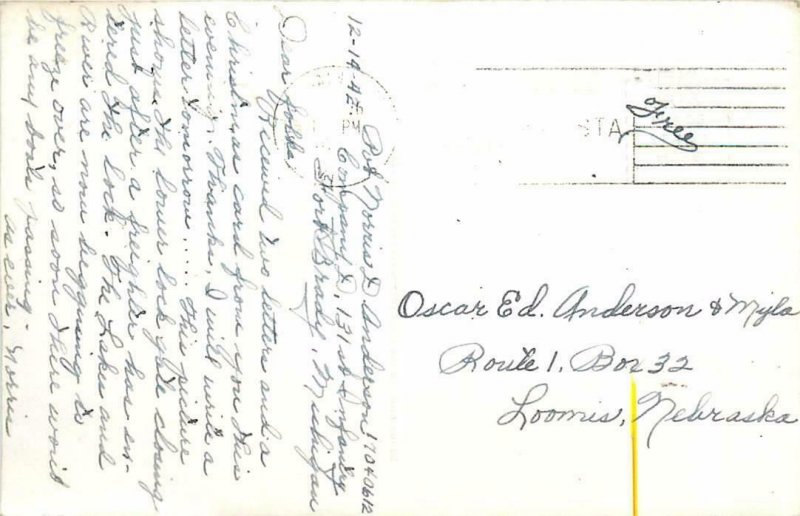 12-14-42
Pvt. Norris L. Anderson 17040612
Company D, 131st Infantry
Fort Brady, Michigan
Dear folks:
Received two letters and a
Christmas card from you this
evening. Thanks, I will write a
letter tomorrow.... This picture
shows the lower lock gate closing
just after a freighter has en-
tered the lock. The Lakes and
River are now beggining to
freeze over, so soon there won't
be any boats passing.
As ever, Norris
PM
STA
Free
Oscar Ed. Anderson & Myla
Route 1, Box 32
Loomis, Nebraska